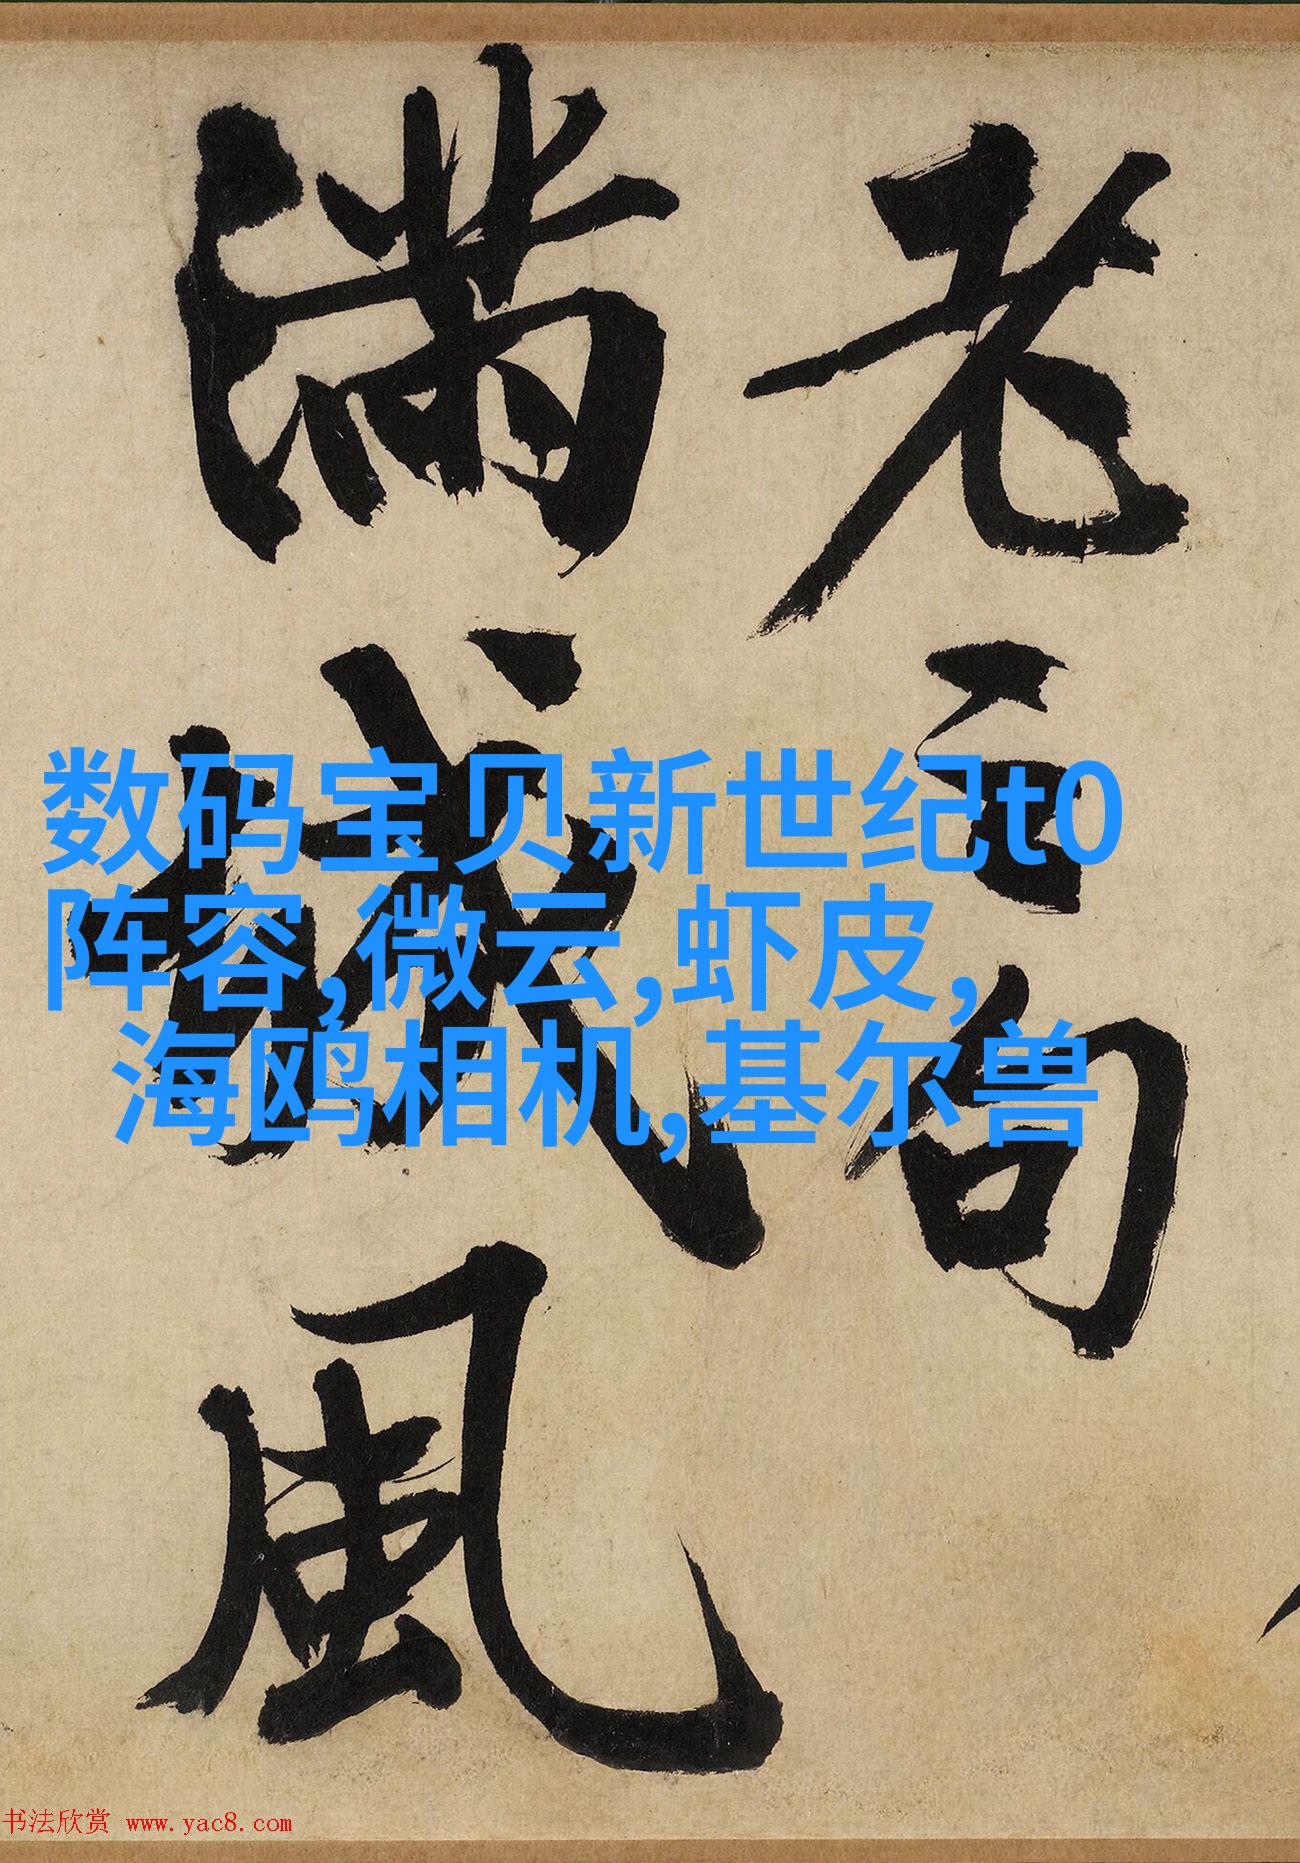 老句
滿城風
数码宝贝新世纪t0
阵容,微云,虾皮,
海鸥相机,基尔兽
书法欣赏 www.yac8.com